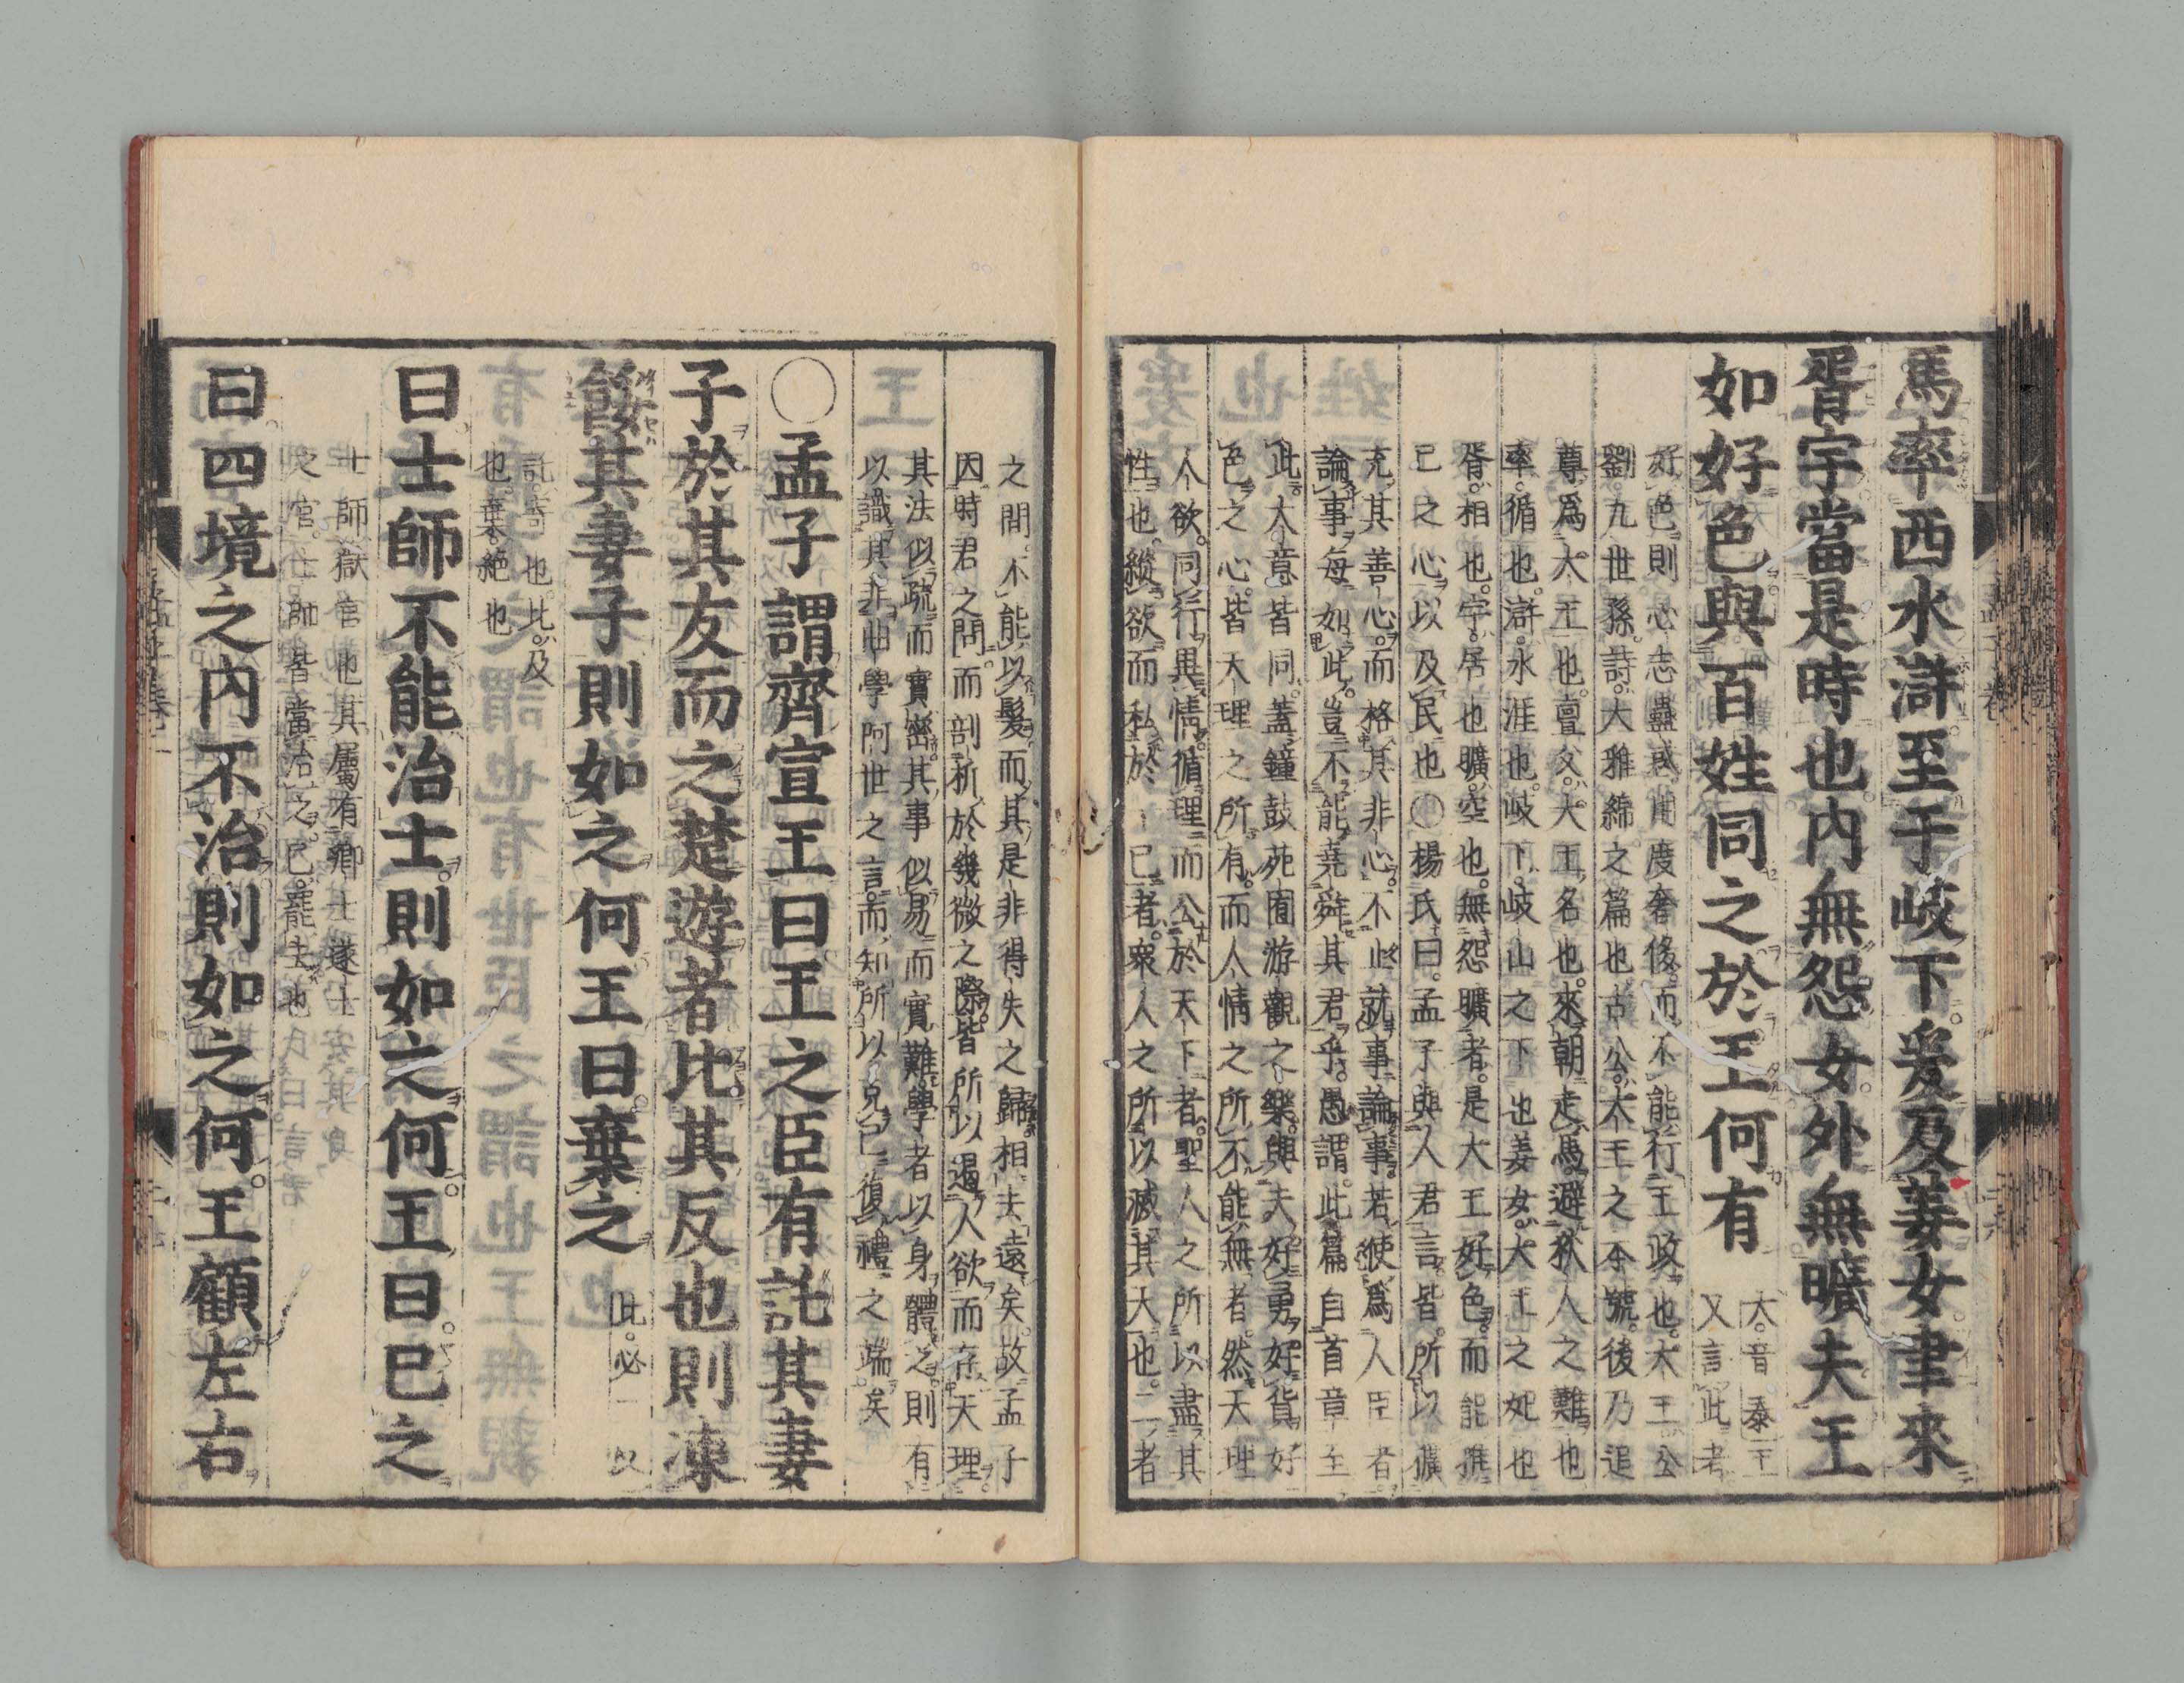 馬率西水滸至于岐下爰及姜女聿來
胥宇當是時也内無怨女外無曠夫王
如好色與百姓同之於王何有
大音泰王
又言此者
好色則心志蠱惑用度奢侈而不能行王政也大王公
劉九世孫詩大雅緜之篇也古公大王之本號後乃追
尊爲大王也亶父大王名也來朝走馬避狄人之難也
率循也滸水涯也岐下岐山之下也姜女大王之妃也
胥相也宇居也曠空也無怨曠者是大王好色而能推
己之心以及民也○楊氏曰孟子與人君言皆所以擴
充其善心而格其非心不止就事論事若使爲人臣者
論事每如此豈不能堯舜其君乎愚謂此篇自首章至
此大意皆同蓋鐘鼓苑囿游觀之樂與夫好勇好貨好
色之心皆天理之所有而人情之所不能無者然天理
人欲同行異情循理而公於天下者聖人之所以盡其
性也縱欲而私於一己者衆人之所以滅其天也二者
之間不能以髮而其是非得失之歸相去遠矣故孟子
因時君之問而剖析於幾微之際皆所以遏人欲而存天理
其法似疏而實密其事似易而實難學者以身體之則有
以識其非曲學阿世之言而知所以克己復禮之端矣
○孟子謂齊宣王曰王之臣有託其妻
子於其友而之楚遊者比其反也則凍
餒其妻子則如之何王曰棄之
此必二
反
託寄也比及
也棄絶也
曰士師不能治士則如之何王曰已之
士師獄官也其屬有鄉士遂士
之官士師皆當治之已罷去也
曰四境之内不治則如之何王顧左右